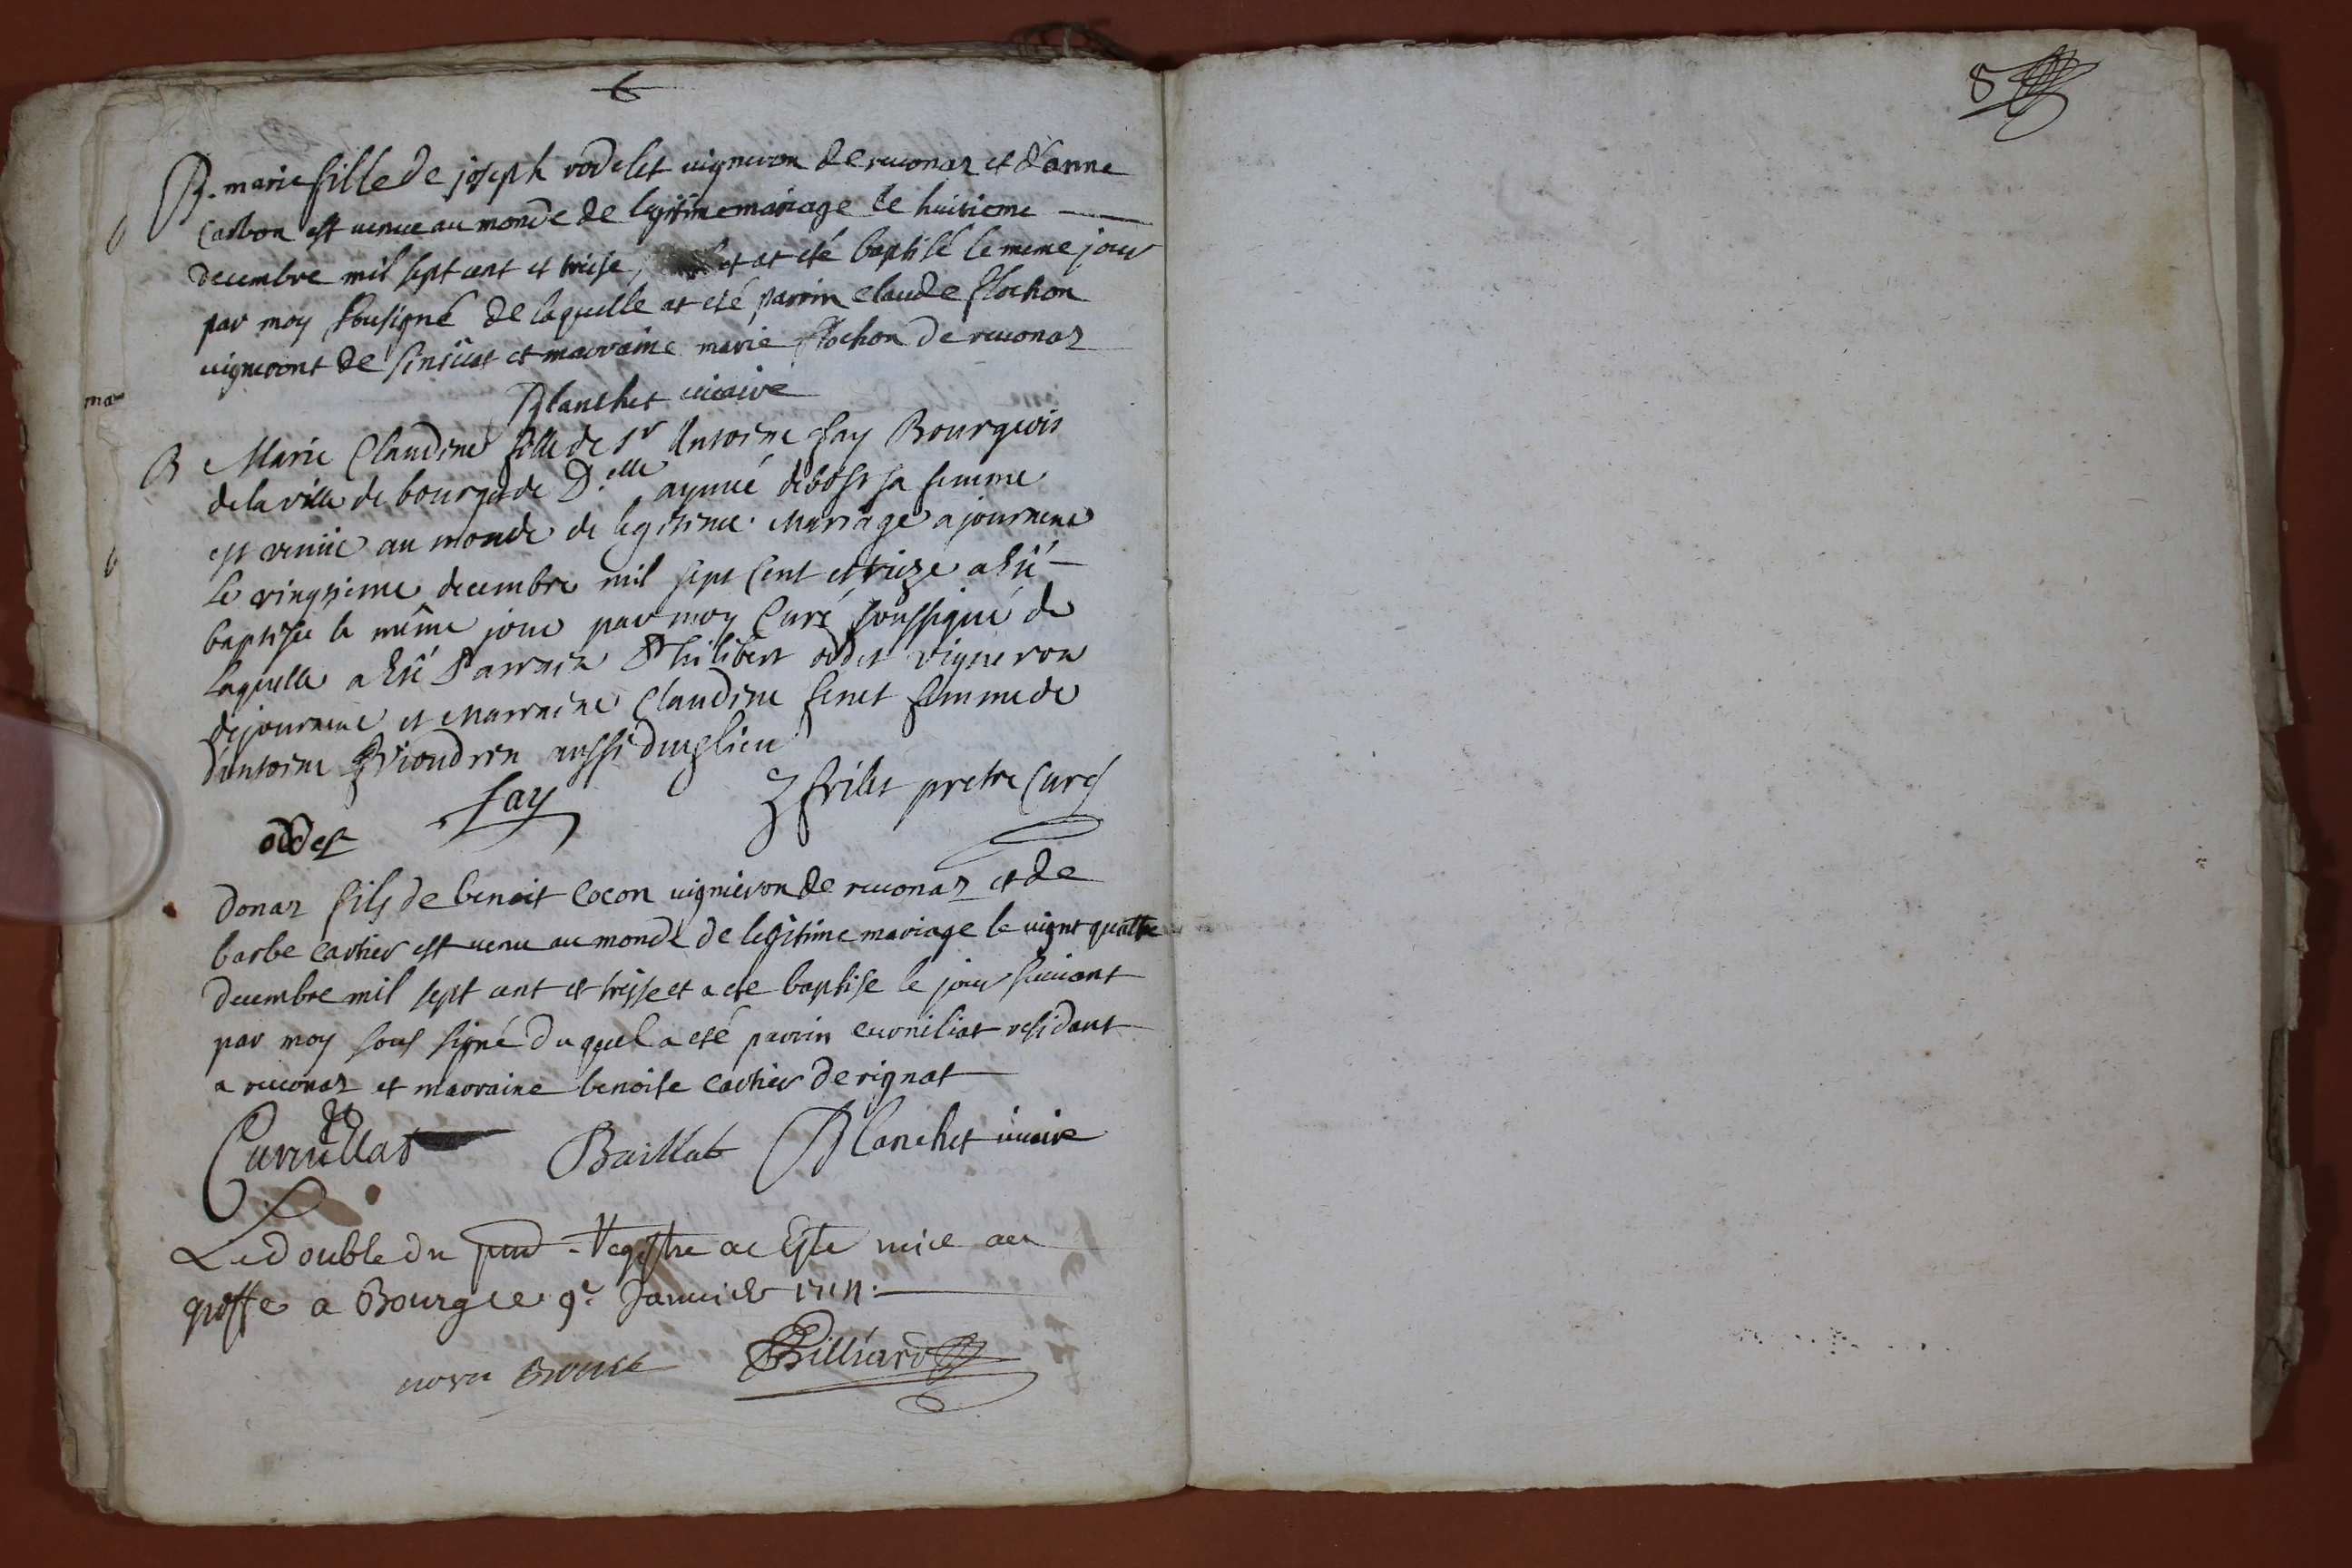 8
B. marie fille de joseph rodelet vigneron de reuonas et d'anne
carbon est venue au monde de legitime mariage le huitieme
decembre mil sept cent et treise, et at eté baptisé le meme jour
par moy sousigné de laquelle at eté parrin claude flochon
vigneront de et marraine marie flochon de reuonas
Blanchet vicaire
B Marie Claudine fille de Sr Antoine Fay Bourgeois
de la ville de bourg et de D.elle aymée debost sa femme
est venüe au monde de legitime Mariage a journeme
le vingtieme decembre mil sept cent et treize a été
baptisée le même jour par moy Curé soussigné de
laquelle a été Parrain Philibert odet vigneron
de journeme et Marraine Claudine fenet femme de
d'antoine Vioudrin aussi dud lieu
fay frilet pretre Curé
oddet
donaz fils de benoit cocon vigneron de reuonas et de
barbe cartier est venu au monde de legitime mariage le vignt quattre
decembre mil sept cent et treisse et a eté baptise le jour suivant
par moy sous signé du quel a eté parrin residant
a reuonas et marraine benoite cartier de rignat
Curnillat Baillat Blanchet vicaire
Le double du pnt Registre ae Este mice au
greffe a Bourg le 9e Janvier 1714.
Billiard